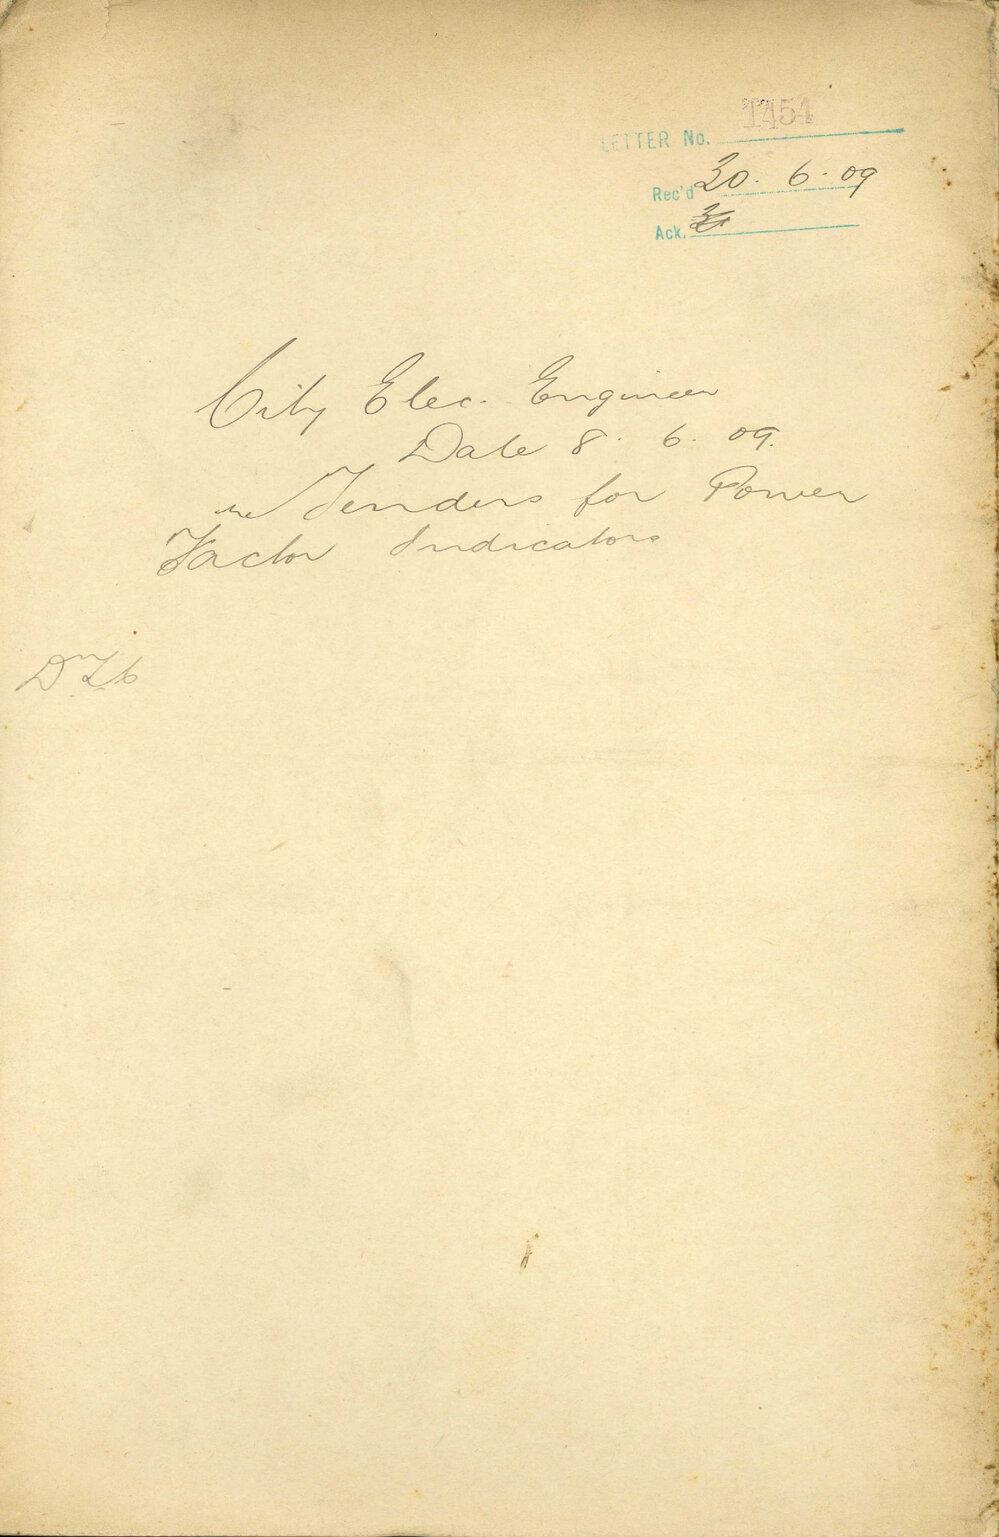 1454
LETTER No.
Rec'd 30. 6. 09
Ack.
City Elec. Engineer
Date 8. 6. 09.
re Tenders for Power
Factor Indicators